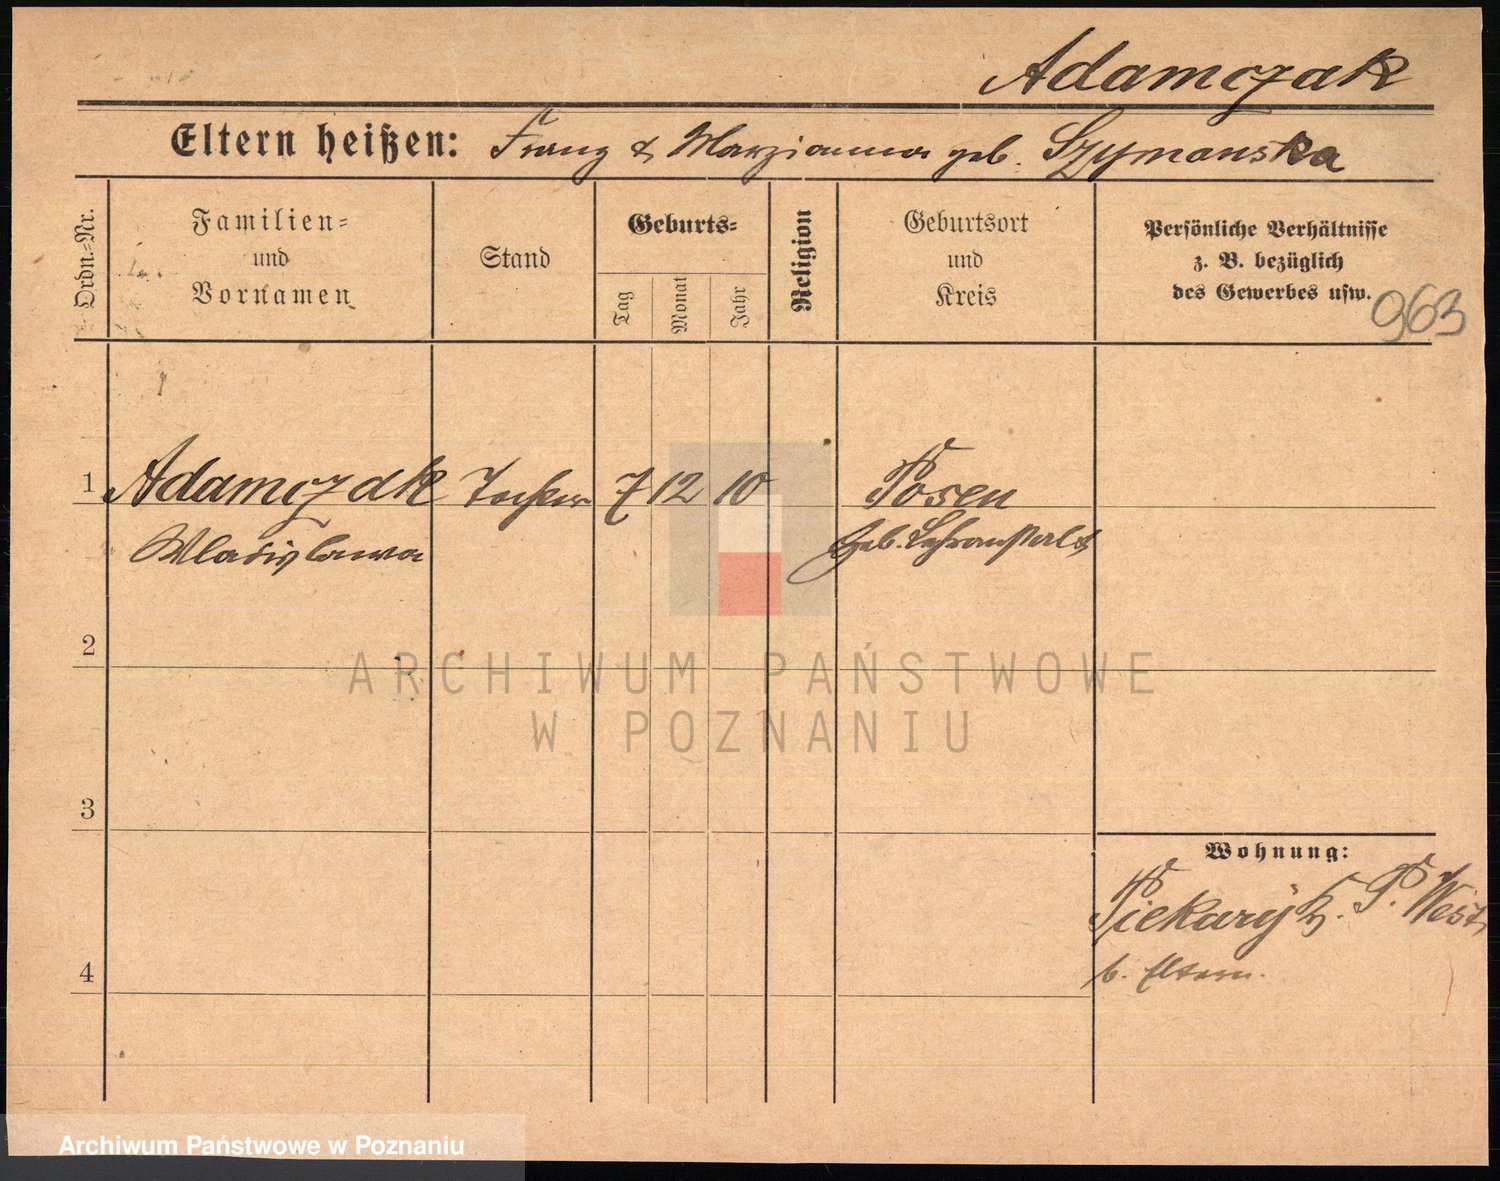 Adamczak
Eltern heißen: Franz & Marzianna geb. Szymanska
Ordn.=Nr.
Familien=
und
Vornamen
Stand
Geburts=
Tag
Monat
Jahr
Religion
Geburtsort
und
Kreis
Persönliche Verhältnisse
z. B. bezüglich
des Gewerbes usw.
963
1 Adamczak Tochter 7 12 10 Posen
Wladislawa Geb. Lehranstalt
2
ARCHIWUM PAŃSTWOWE
W POZNANIU
3
Wohnung:
Piekary K. P. West
b. Eltern.
4
Archiwum Państwowe w Poznaniu